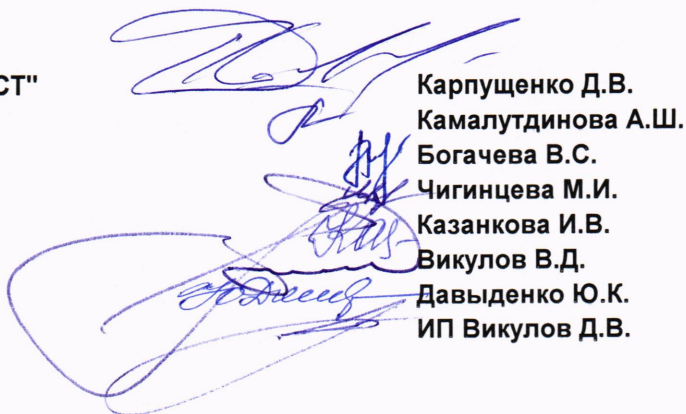 СТ" Карпущенко Д.В.
Камалутдинова А.Ш.
Богачева В.С.
Чигинцева М.И.
Казанкова И.В.
Викулов В.Д.
Давыденко Ю.К.
ИП Викулов Д.В.